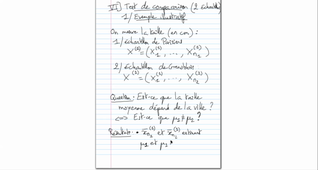 VI) Test de comparaison (2 échantill
1/ Exemple introductif
On mesure la taille (en cm) :
1/ échantillon de Parisiens
X⁽¹⁾ = (X₁⁽¹⁾, ..., Xₙ₁⁽¹⁾)
2/ échantillon de Grenoblois
X⁽²⁾ = (X₁⁽²⁾, ..., Xₙ₂⁽²⁾)
Question : Est-ce que la taille
moyenne dépend de la ville ?
⟺ Est-ce que μ₁ ≠ μ₂ ?
• x̄ₙ₁⁽¹⁾ et x̄ₙ₂⁽²⁾ estiment
μ₁ et μ₂